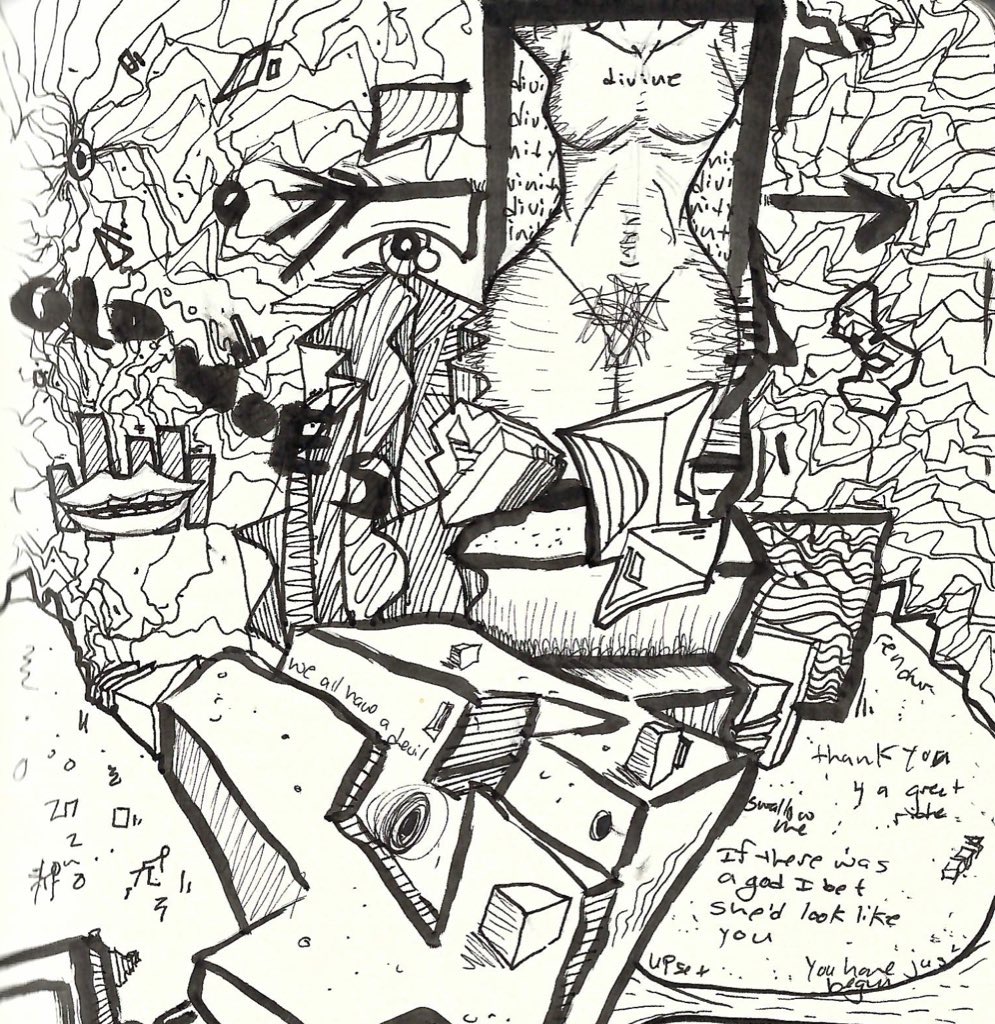 divine
divi
divi
nity
vinity
divi
inity
divi
nity
OLD
we all have a devil
thank you
y a great
swallow
me
If there was
a god I bet
she'd look like
you
upset
You have just
begun